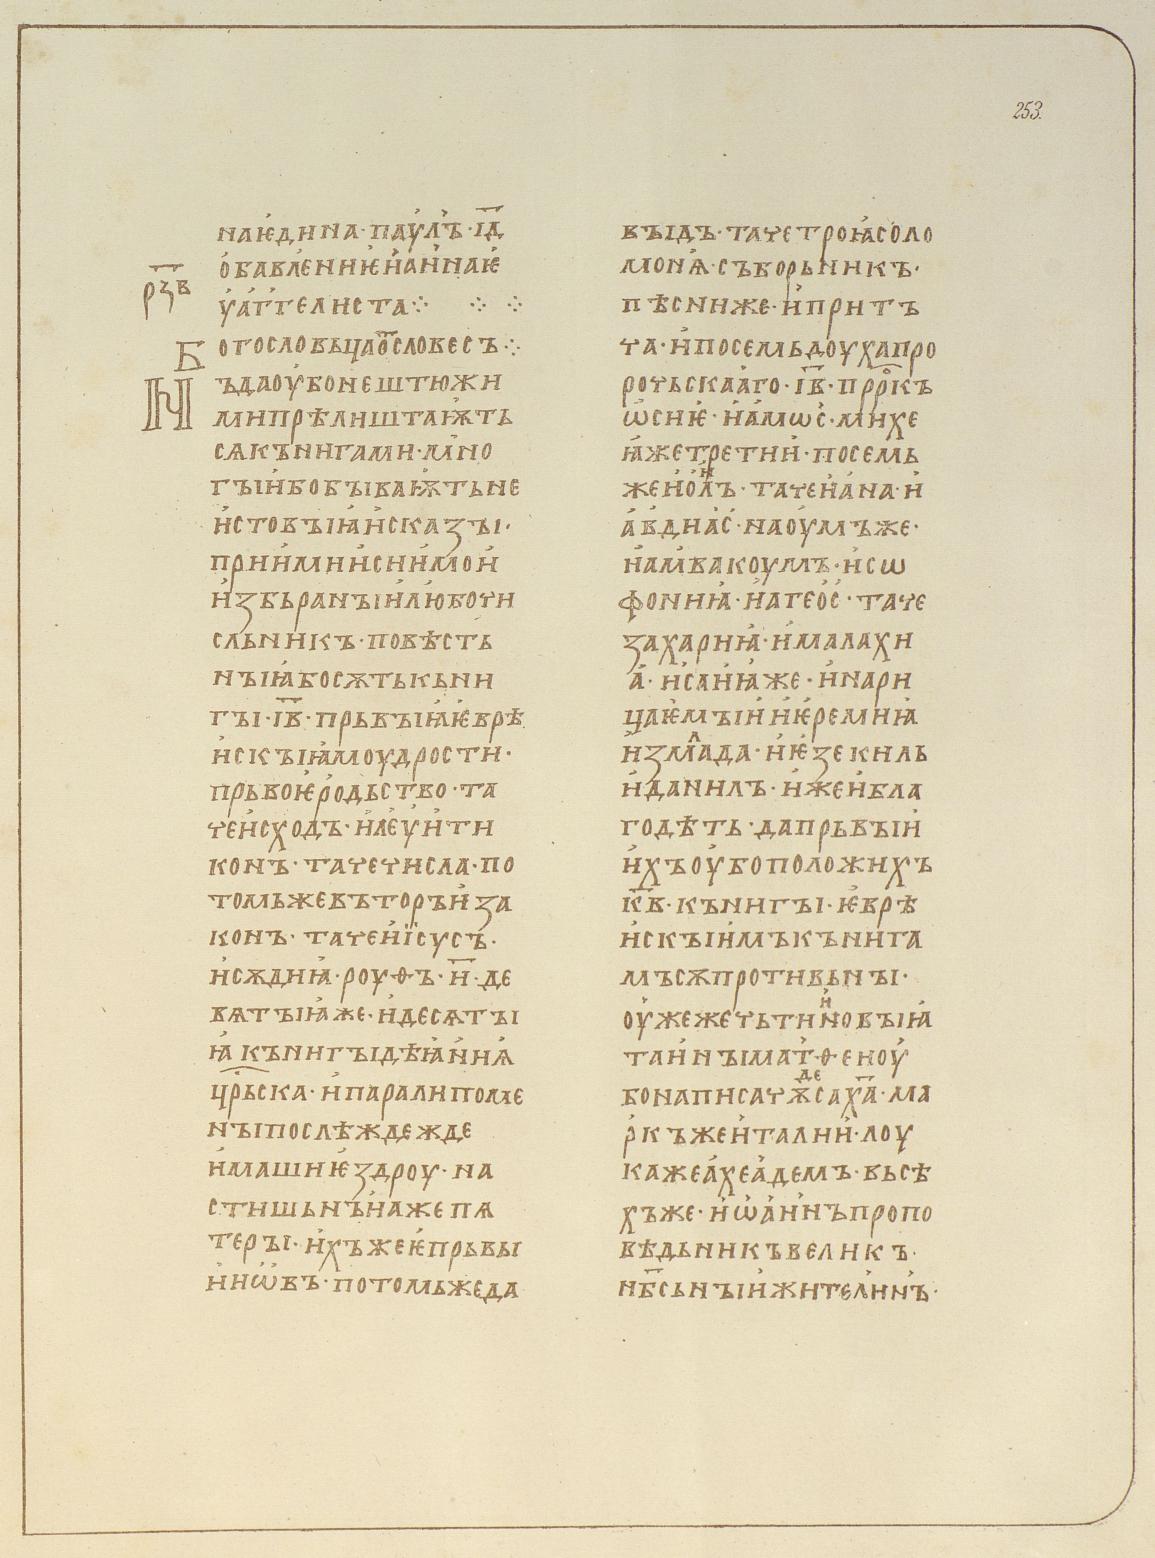 253.
наѥдина·паѵлъ·і҃д
обавлениѥианнаѥ
рз҃в
ѵаггелиста⁘ ⁘ ⁘
Богословьцао҃словесъ⁘
Нъдаоубонештюжи
мипрѣлиштаѭть
сѧкънигами·мно
гꙑибобꙑваѭтьне
истовꙑꙗисказꙑ·
приимииснимои
избьранꙑилюбочи
сльникъ·повѣсть
нꙑꙗбосѫтькьни
гꙑ·і҃в·прьвꙑꙗѥврѣ
искꙑꙗмоудрости·
прьвоѥродьство·та
чеисходъ·илеѵити
конъ·тачечисла·по
томьжевъторъиза
конъ·тачеиїсусъ·
исѫдиꙗ·роуѳъ·и҃·де
вѧтꙑꙗже·идесѧтꙑ
ꙗкънигꙑдѣꙗниꙗ
црьска·ипаралипоме
нꙑпослѣждежде
имашиѥздроу·на
стишьнъинажепѧ
терꙑ·ихъжеѥпрьвꙑ
ииѡвъ·потомьжеда
вꙑдъ·тачетроꙗсоло
монѧ·съборьникъ·
пѣсниже·ипритъ
ча·ипосемьдоухапро
рочьскааго·і҃в·пррк҃ъ
ѡсиѥ·иамѡс·михе
ꙗжетретии·посемь
жеиоилъ·тачеиана·и
авдиас·наоумъже·
иамвакоумъ·исѡ
фониꙗ·иагеос·таче
захариꙗ·ималахи
а·исаиꙗже·инари
цаѥмꙑииѥремиꙗ
измлада·иѥзекиль
иданилъ·ижеибла
годѣть·дапрьвꙑи
ихъоубоположихъ
к҃в·кънигꙑ·ѥврѣ
искꙑимъкънига
мъсѫпротивьнꙑ·
оужежечьтииновꙑꙗ
таинꙑматѳеноу
бонаписачѫдесах҃а·ма
ркъжеиталии·лоу
кажеахеадемъ·вьсѣ
хъже·иѡаннъпропо
вѣдьникъвеликъ·
нб҃сьнꙑижителинъ·